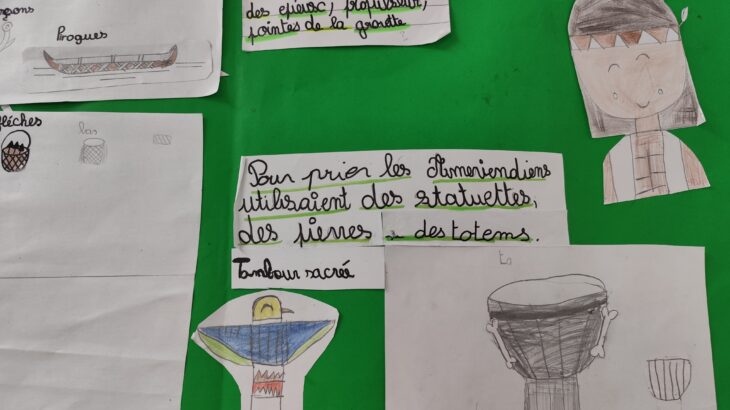 Pirogues
des épieux, propulseur,
pointes de la gravette
flèches
bas
Pour prier les Ameriendiens
utilisaient des statuettes,
des pierres des totems.
Tambour sacrée